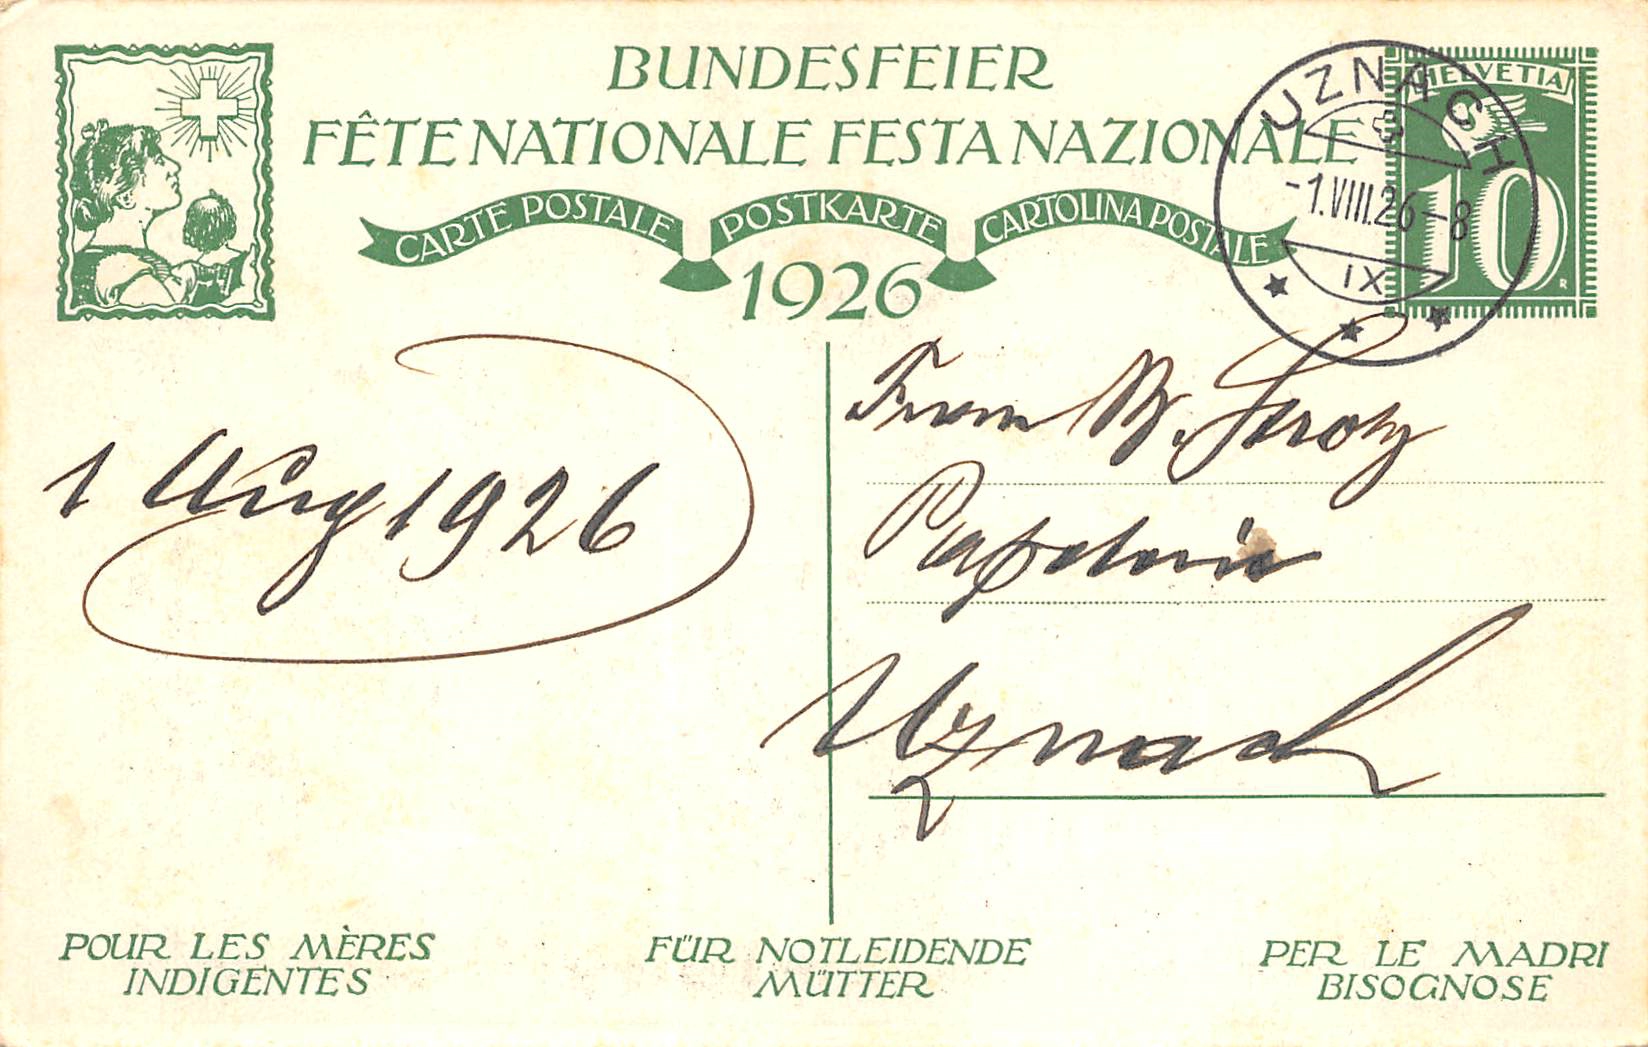 BUNDESFEIER
FÊTE NATIONALE FESTA NAZIONALE
CARTE POSTALE POSTKARTE CARTOLINA POSTALE
1926
HELVETIA
10
R
UZNACH
-1.VIII.26-8
IX
1 Aug 1926
Frau B.
Papeterie
Uznach
POUR LES MÈRES
INDIGENTES
FÜR NOTLEIDENDE
MÜTTER
PER LE MADRI
BISOGNOSE